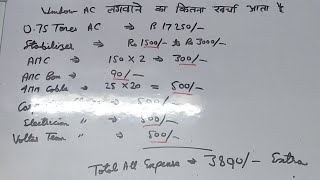 Window AC लगवाने का कितना खर्चा आता है
0.75 Tones AC ⇒ Rs 17250/-
Stabilizer ⇒ Rs 1500/- to Rs 3000/-
AMC ⇒ 150 x 2 ⇒ 300/-
AMC Box ⇒ 90/-
4MM Cable ⇒ 25 x 20 = 500/-
" ⇒ 500/-
Electrician " ⇒ 500/-
Voltas Team " ⇒ 500/-
Total All Expense ⇒ 3890/- Extra